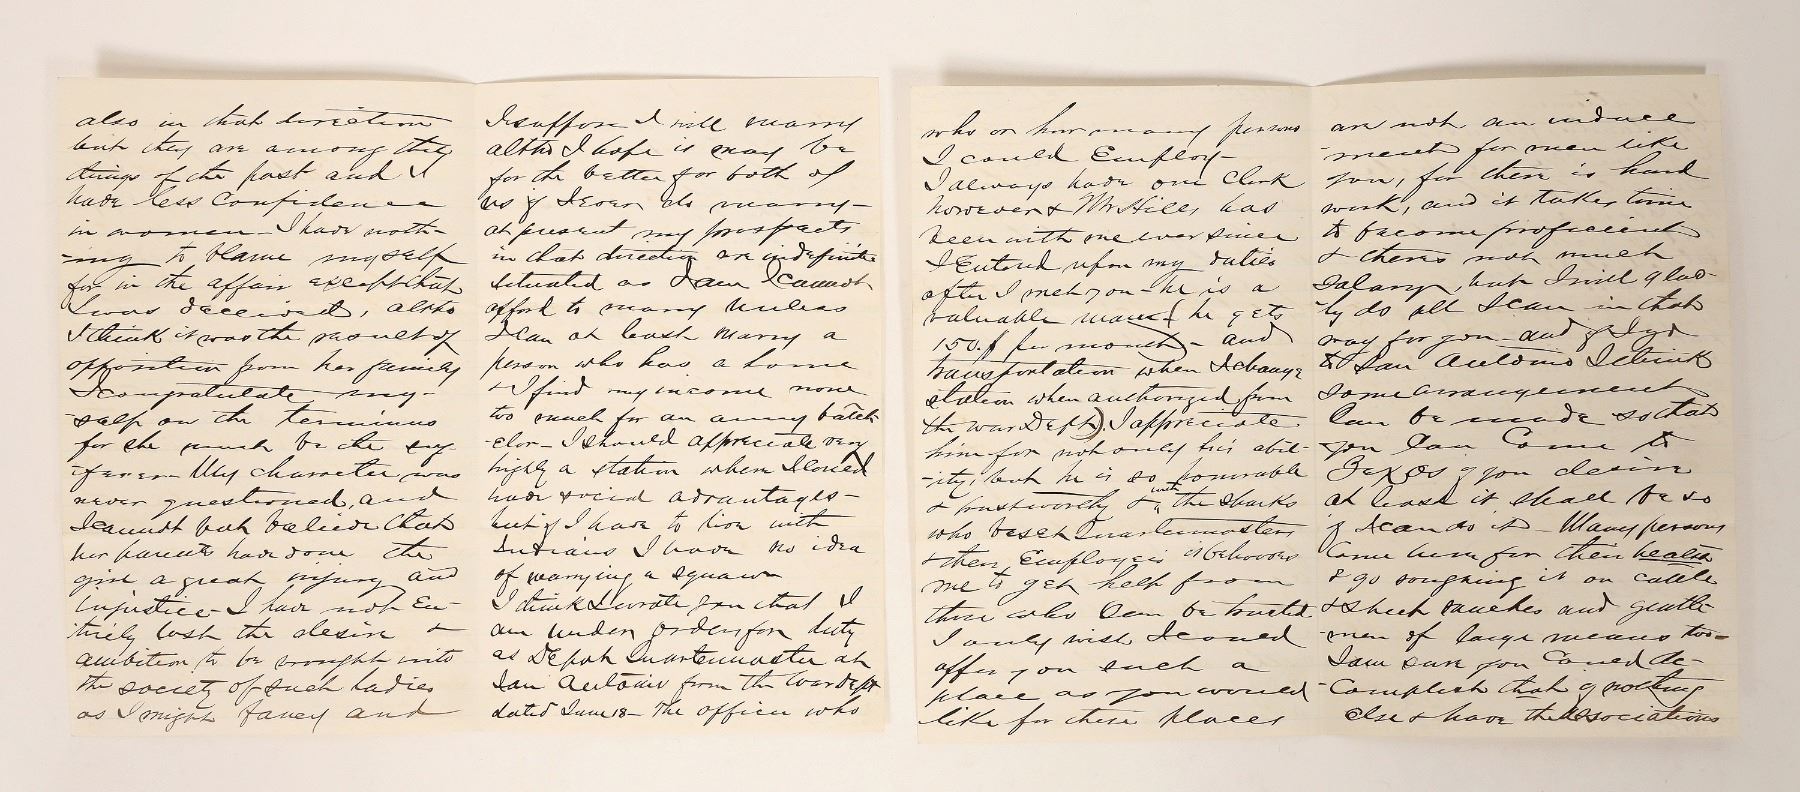 also in that direction
but they are among the
things of the past and I
have less Confidence
in women - I have noth-
-ing to blame myself
for in the affair except that
I was deceived, altho
I think it was the result of
opposition from her family
I congratulate my-
-self on the terminus
for she must be the suf-
-ferer - My character was
never questioned, and
I cannot but believe that
her parents have done the
girl a great injury and
injustice - I have not En-
tirely lost the desire &
ambition to be brought into
the society of such ladies
as I might fancy and
I suppose I will marry
altho I hope it may be
for the better for both of
us if I ever do marry -
at present my prospects
in that direction are indefinite
situated as I am I cannot
afford to marry unless
I can at least marry a
person who has a home
& I find my income none
too much for an army batch-
-elor - I should appreciate very
highly a station where I could
have social advantages -
but if I have to live with
Indians I have no idea
of marrying a squaw
I think I wrote you that I
am under orders for duty
as Depot Quartermaster at
San Antonio from the War Dept
dated June 18 - The officer who
who or how many persons
I could Employ -
I always have one Clerk
however & Mr Hills has
been with me ever since
I Entered upon my duties
after I met you - he is a
valuable man ( he gets
150.$ per month - and
transportation when I change
station when authorized from
the war Dept.) I appreciate
him for not only his abil-
-ity, but he is so honorable
& trustworthy & with the sharks
who beset Quartermasters
& their Employees it behooves
me to get help from
those who Can be trusted
I only wish I could
offer you such a
place as you would
like for these places
are not an induce
-ment for men like
you, for there is hard
work, and it takes time
to become proficient
& there's not much
salary, but I will glad-
-ly do all I can in that
way for you - and if I go
to San Antonio I think
some arrangement
Can be made so that
you Can Come to
Texas if you desire
at least it shall be so
if I can do it - Many persons
Come here for their health
& go roughing it on cattle
& sheep ranches and gentle-
men of large means too -
I am sure you Could ac-
Complish that if nothing
else & have the associations